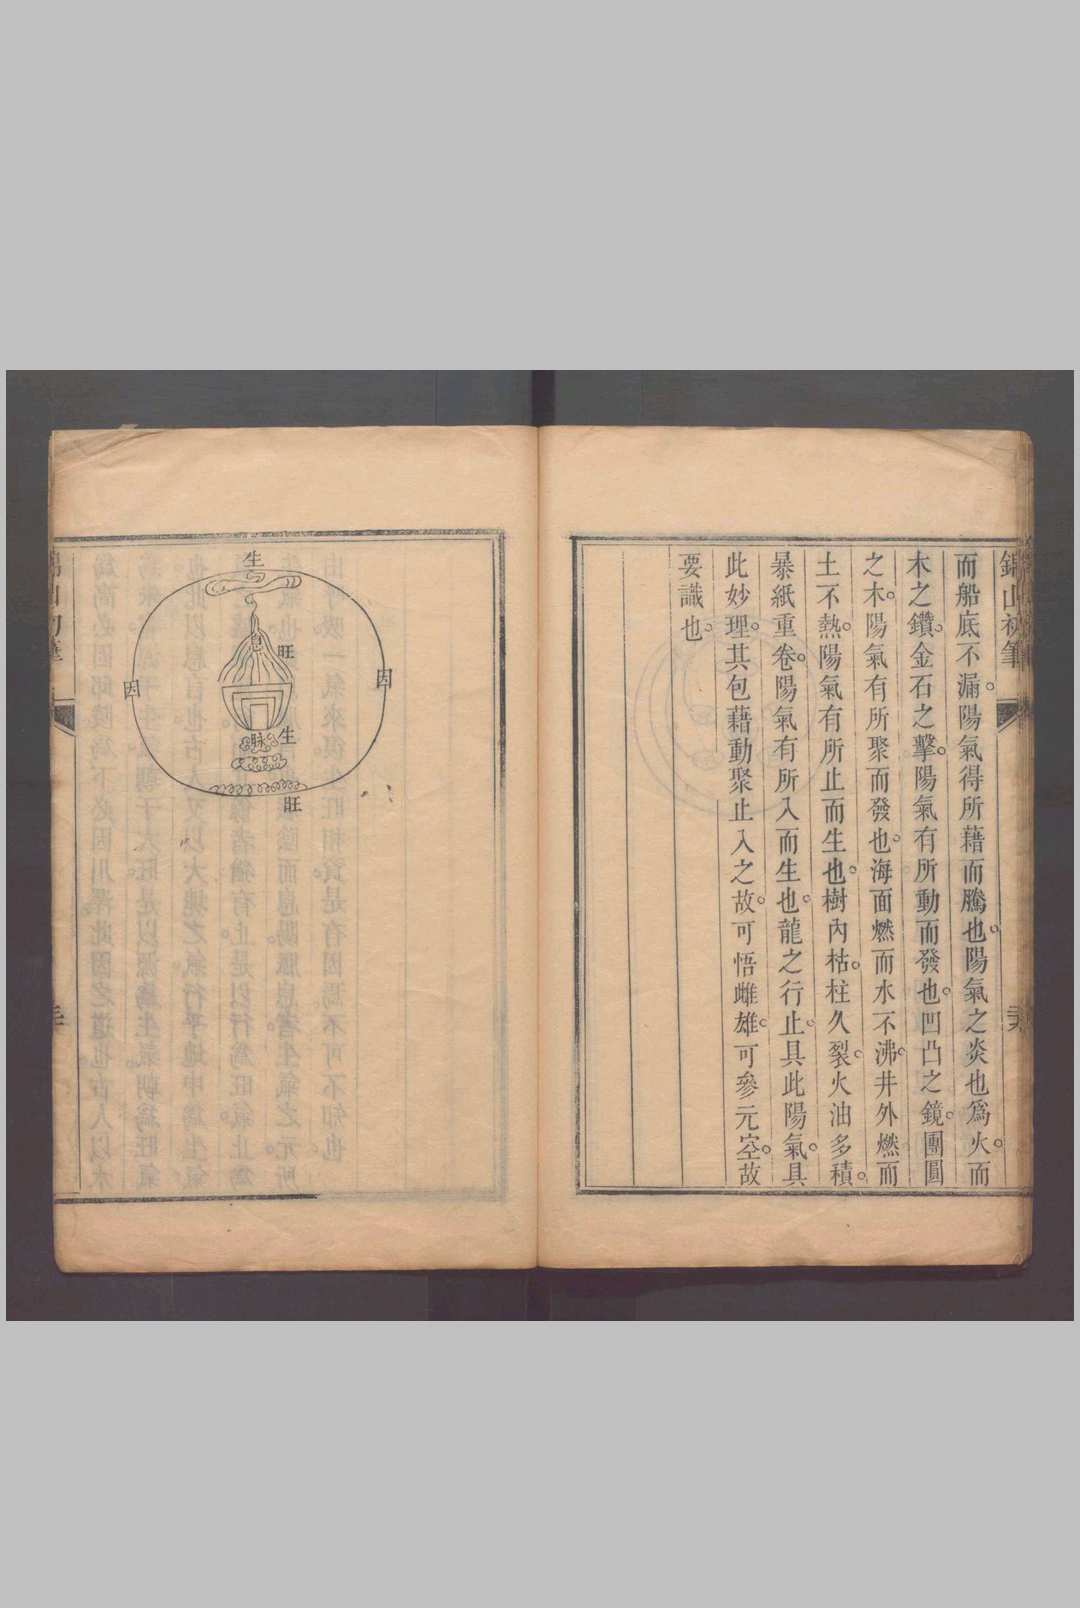 錫山初筆
而船底不漏。陽氣得所藉而騰也。陽氣之炎也爲火。而
木之鑽。金石之擊。陽氣有所動而發也。凹凸之鏡。團圓
之木。陽氣有所聚而發也。海面燃而水不沸。井外燃而
土不熱。陽氣有所止而生也。樹內枯。柱久裂。火油多積。
暴紙重卷。陽氣有所入而生也。龍之行止。具此陽氣。具
此妙理。其包藉動聚止入之故。可悟雌雄。可參元空。故
要識也。
生
息
旺
因
因
生
脉
旺